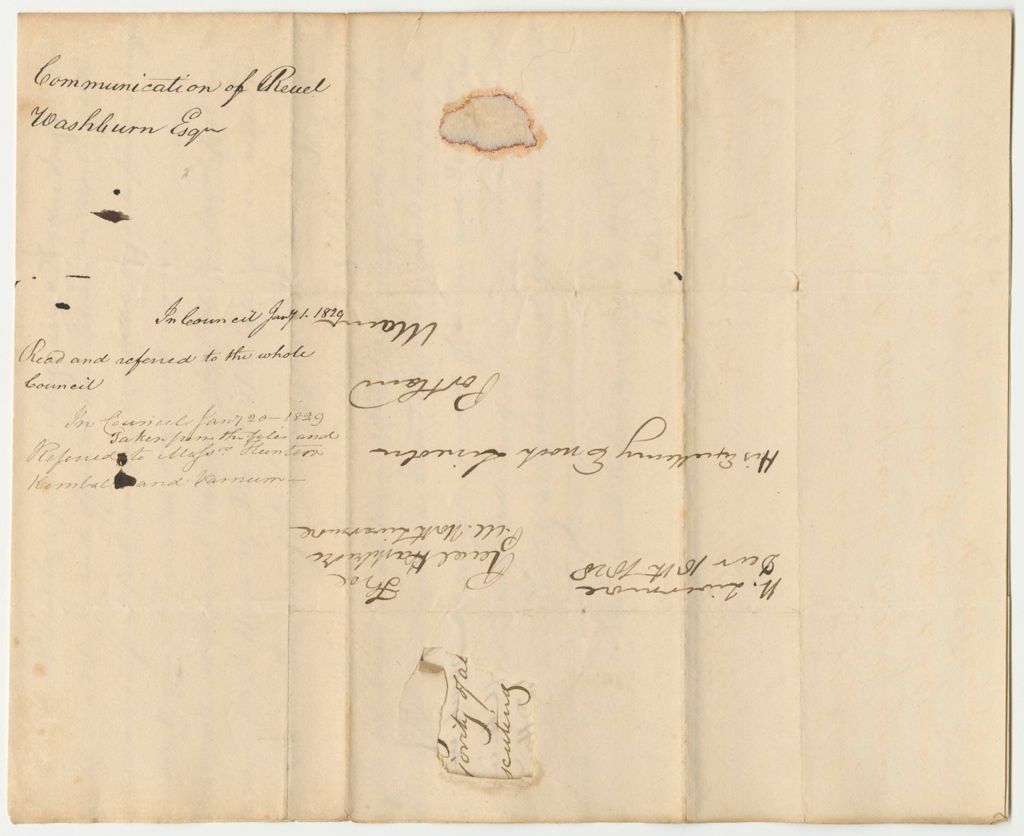 Communication of Reuel
Washburn Esqr
In Council Jany 1. 1829
Read and referred to the whole
Council
In Council Jany 20 - 1829
Taken from the files and
Referred to Messrs Huntoon
Kimball and Varnum -
N. Livermore
Decr 18th 1828
Free
Reuel Washburn
P.M. North Livermore
His Excellency Enoch Lincoln
Portland
Maine
jority of al
scuting